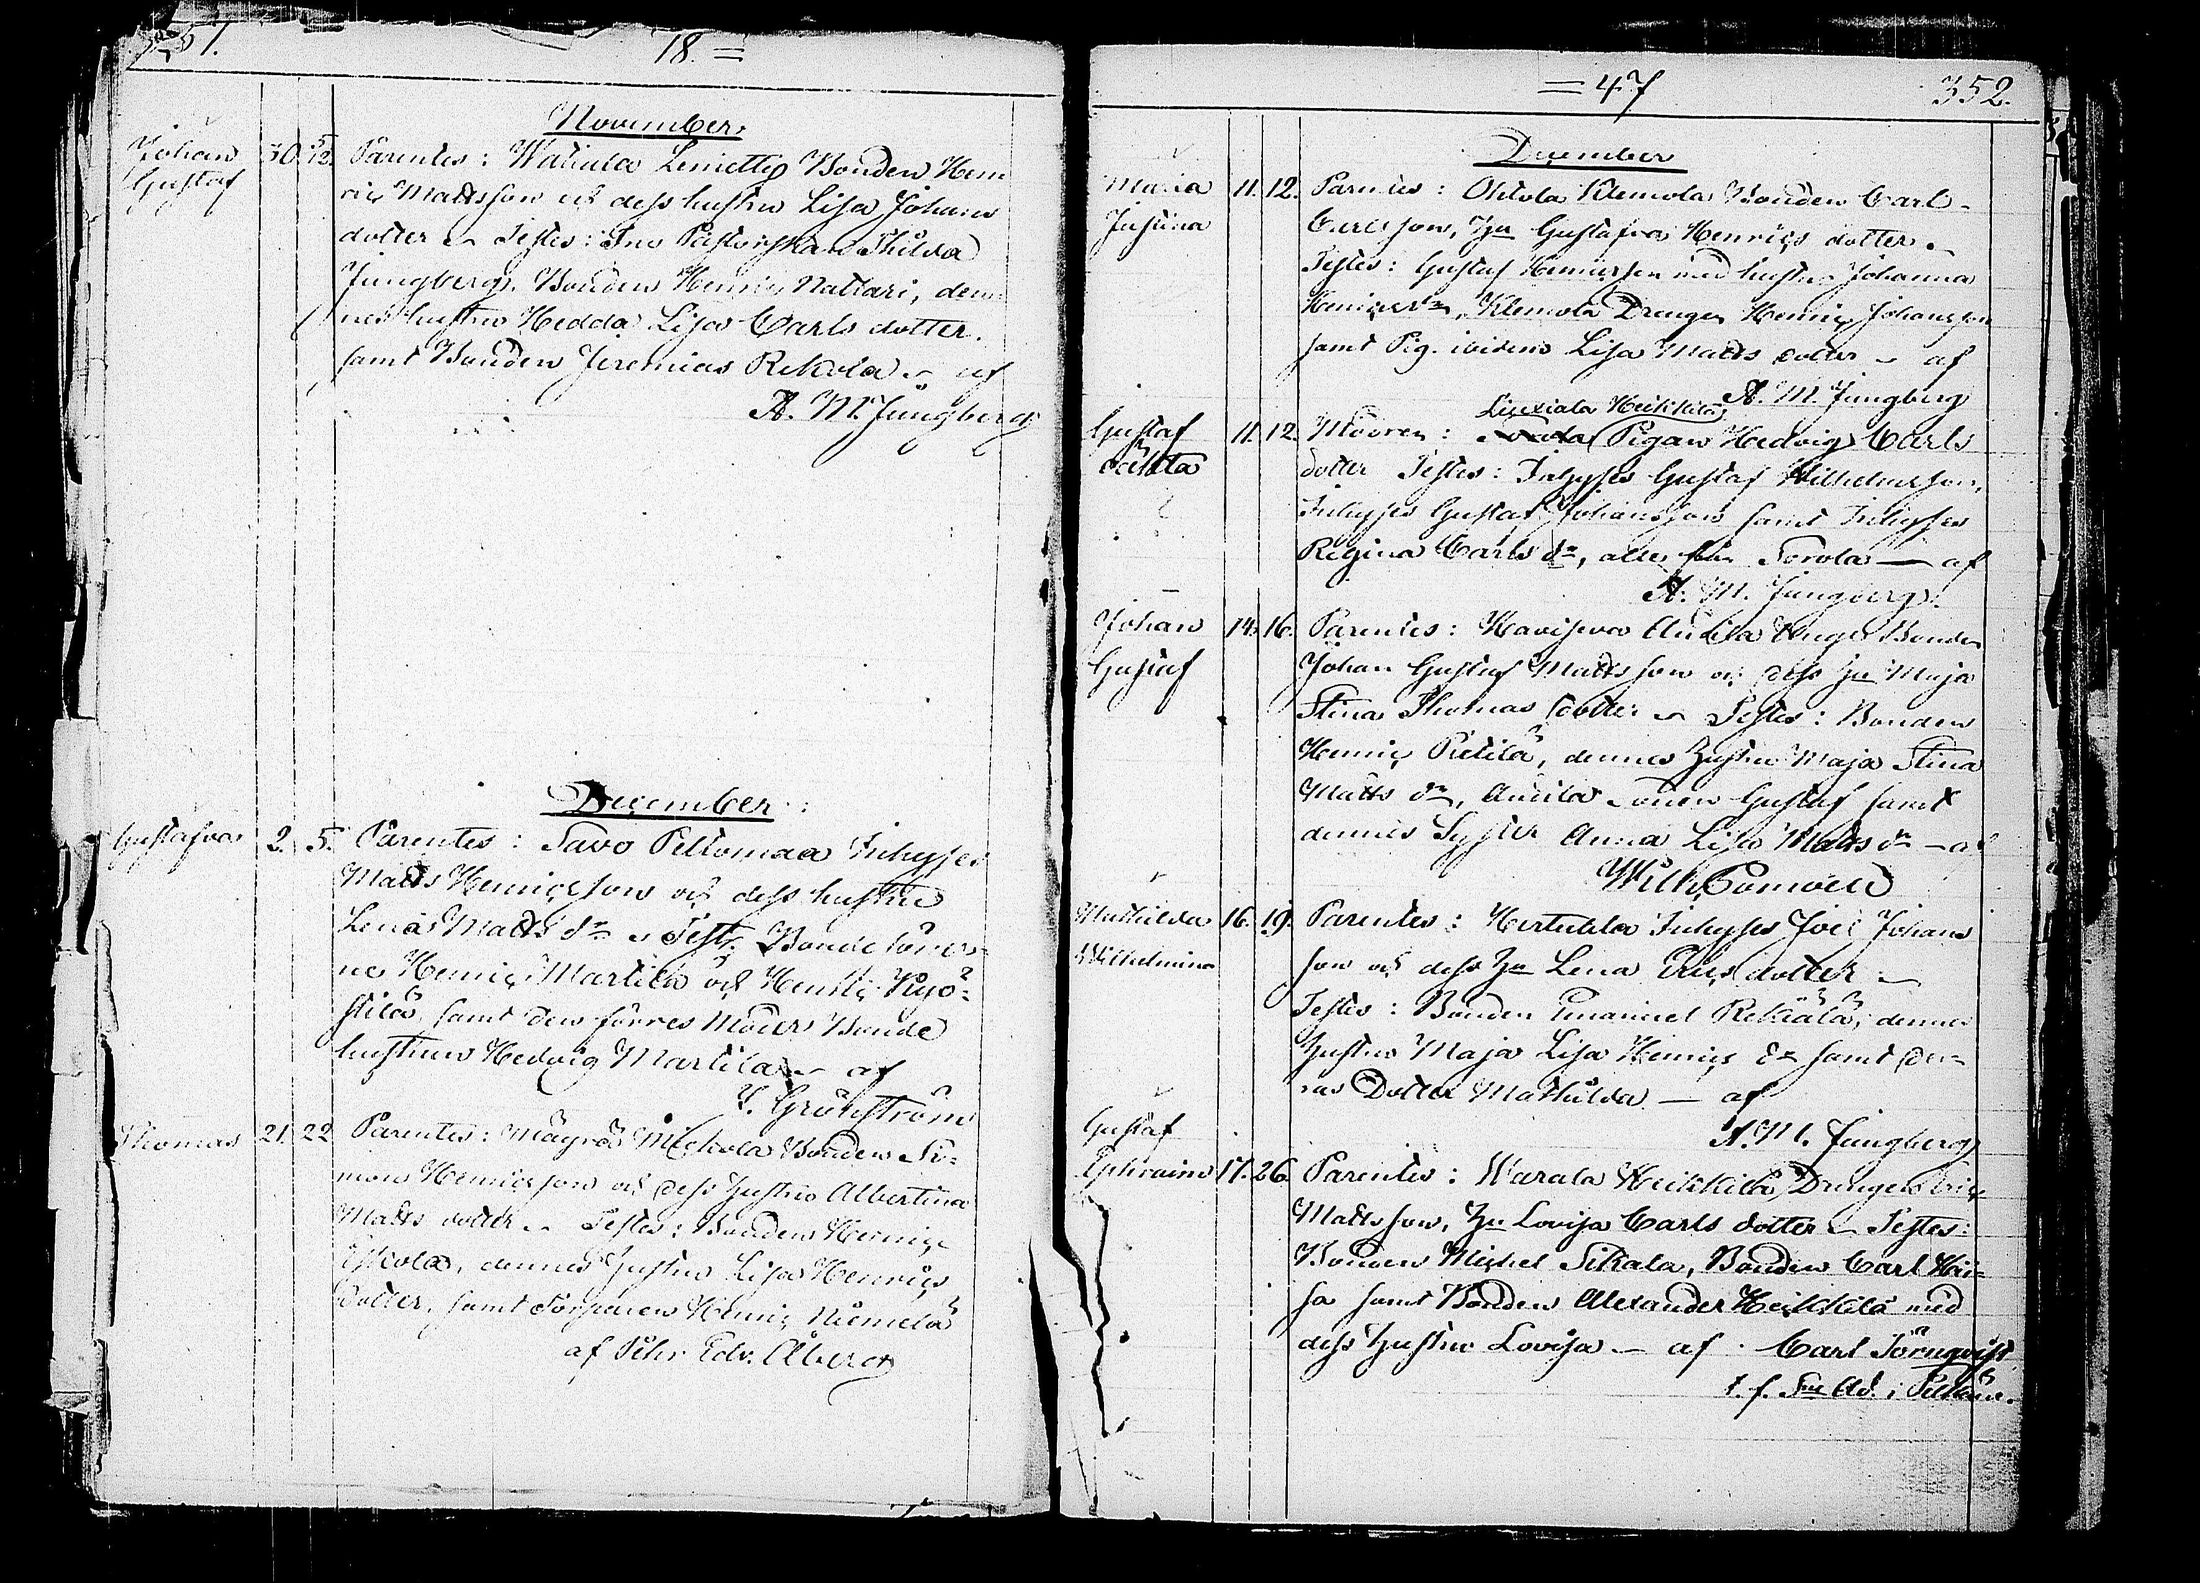 351.
18. =
November.
Johan 30. 5/12. Parentes: Watiala Lenettig Bonden Hen
Gustaf rig Mattsson och dess hustru Lisa Johans
dotter. Testes: Fru Pastorskan Thilda
Jungberg, Bonden Henrig Nattari, den
nes hustru Hedda Lisa Carls dotter.
samt Bonden Jeremias Rekola. af
A. M. Jungberg
December:
Gustafva 2. 5. Parentes: Savo Peltomaa Inhyses
Matts Henricsson och dess hustru
Lena Matts dr. Test. Bondesöner-
ne Henric Martila och Henric Kyö-
stilä, samt den förres Moder Bonde
hustrun Hedvig Martila. af
Grönström
Thomas 21. 22 Parentes: Mäyrä Mickola Bonden Si-
mon Henricsson och dess hustru Albertina
Matts dotter. Testes: Bonden Henric
Eskola, dennes hustru Lisa Henrics
dotter, samt Torparen Henric Niemelä
af Pehr Edv. Åberg
= 47
352.
December
Maria 11. 12. Parentes: Ohtola Klemola Bonden Carl
Justina Carlsson, hu Gustafva Henrics dotter.
Testes: Gustaf Henricsson med hustru Johanna
Henricsdr, Klemola Drengen Henric Johansson
samt Pig. ibidem Lisa Matts dotter - af
A. M. Jungberg
Heikkilä
Gustaf 11. 12. Modren: Pigan Hedvig Carls
oäkta dotter Testes: Inhyses Gustaf Wilhelmsson,
Inhyses Gustaf Johansson samt Inhyses
Regina Carls dr, alla från Sorola - af
A. M. Jungberg.
Johan 14. 16. Parentes: Kaviseva Anttila Unge Bonden
Gustaf Johan Gustaf Mattsson och dess hu Maja
Stina Thomas dotter. Testes: Bonden
Henric Pietilä, dennes hustru Maja Stina
Matts dr, Anttila sonen Gustaf samt
dennes Syster Anna Lisa Matts dr - af
Wilh.
Mathilda 16. 19. Parentes: Hertuala Inhyses Joel Johans
Wilhelmina son och dess hu Lena Erics dotter -
Testes: Bonden Emanuel Rekiälä, dennes
hustru Maja Lisa Henrics dr samt de-
ras Dotter Mathilda. - af
A. M. Jungberg
Gustaf
Ephraim 17. 26. Parentes: Warala Heikkilä Drengen Eric
Mattsson, hu Lovisa Carls dotter - Testes:
Bonden Michel Sikala, Bonden Carl Hei-
sa samt Bonden Alexander Heikkilä med
dess hustru Lovisa - af Carl Törnqvist
t. f. Sne Ad. i Pelkäne.